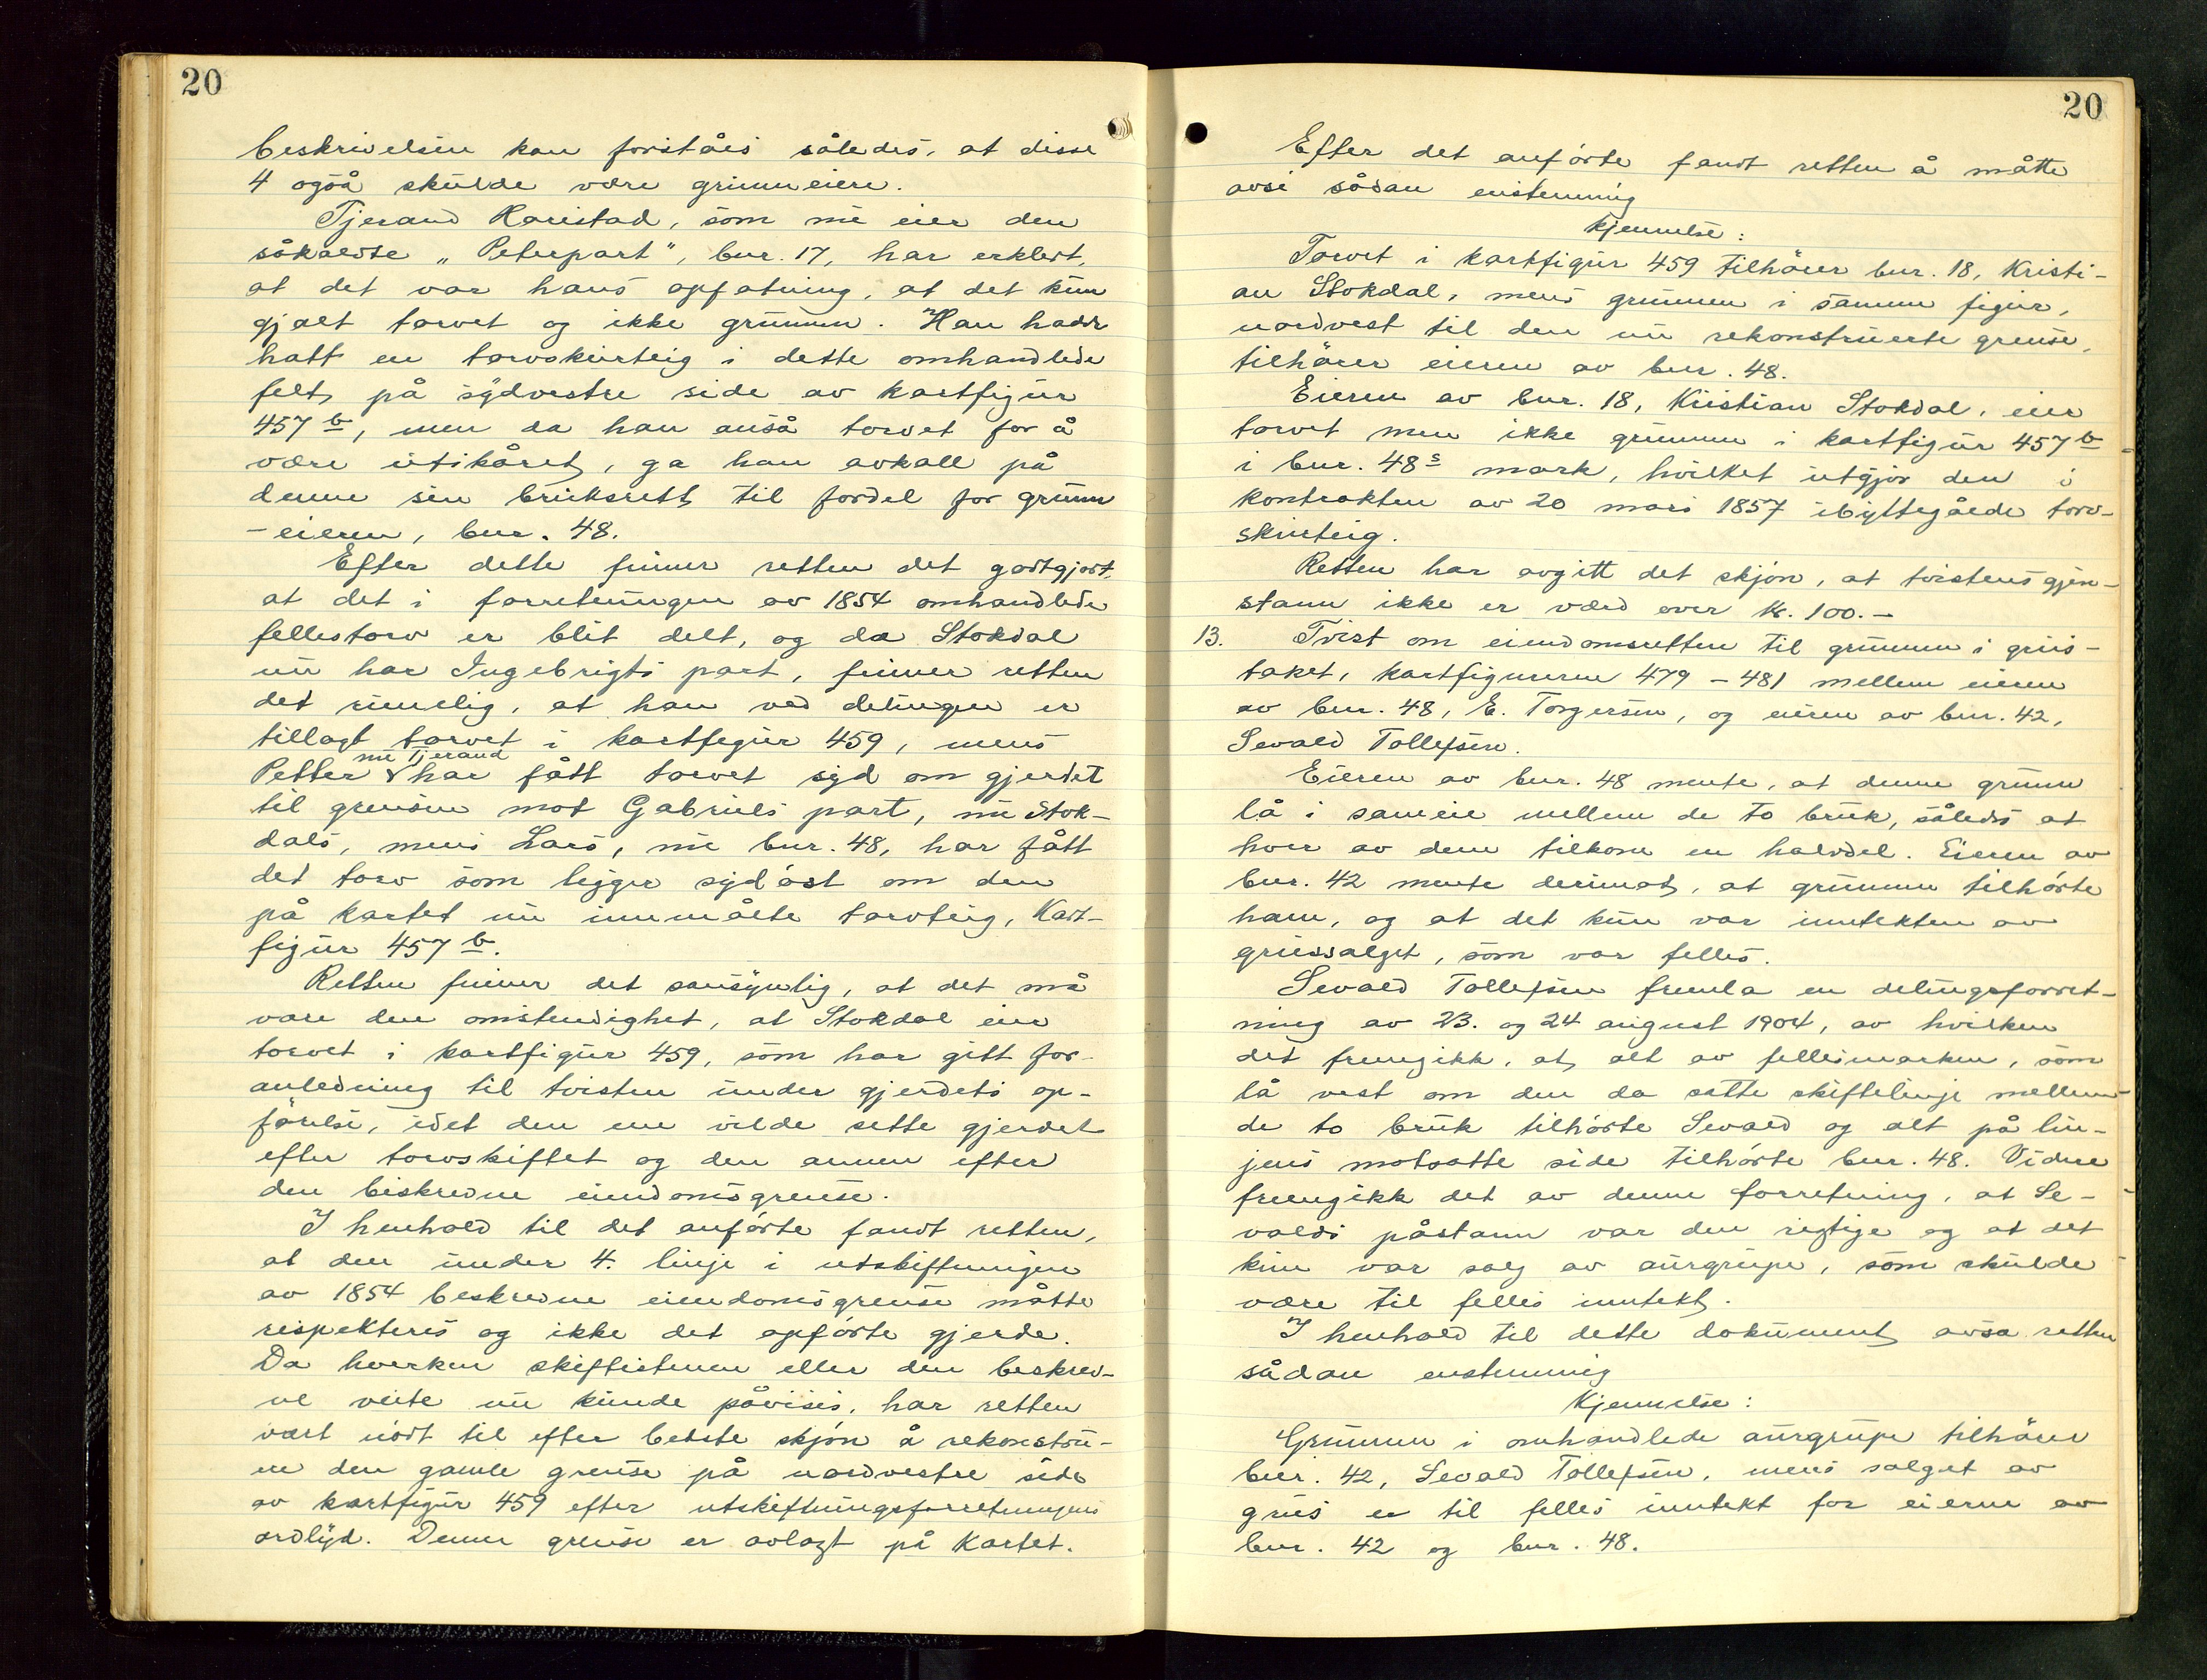 20
beskrivelsen kan forståes således, at disse
4 også skulde være grunneiere.
Tjerand Karistad, som nu eier den
såkaldte „Peterpart", bnr. 17, har erklert,
at det var hans opfatning, at det kun
gjalt torvet og ikke grunnen. Han hadde
hatt en torvskurteig i dette omhandlede
felt, på sydvestre side av kartfigur
457 b, men da han anså torvet for å
være utskåret, ga han avkall på
denne sin bruksrett til fordel for grunn
-eieren, bnr. 48.
Efter dette finner retten det godtgjort,
at det i forretningen av 1854 omhandlede
fellestorv er blit delt, og da Stokdal
nu har Ingebrigts part, finner retten
det rimelig, at han ved delingen er
tillagt torvet i kartfigur 459, mens
nu Tjerand
Petter har fått torvet syd om gjerdet
til grensen mot Gabriels part, nu Stok-
dals, mens Lars, nu bnr. 48, har fått
det torv som ligger sydøst om den
på kartet nu innmålte torvteig, Kart-
figur 457 b.
Retten finner det sansynlig, at det må
være den omstendighet, at Stokdal eier
torvet i kartfigur 459, som har gitt for-
anledning til tvisten under gjerdets op-
førelse, idet den ene vilde sette gjerdet
efter torvskiftet og den annen efter
den beskrevne eiendomsgrense.
I henhold til det anførte fandt retten,
at den under 4. linje i utskiftningen
av 1854 beskrevne eiendomsgrense måtte
respekteres og ikke det opførte gjerde.
Da hverken skiftestenen eller den beskrev-
ne veite nu kunde påvises, har retten
vært nødt til efter bedste skjøn å rekonstru-
ere den gamle grense på nordvestre side
av kartfigur 459 efter utskiftningsforretningens
ordlyd. Denne grense er avlagt på Kartet.
20
Efter det anførte fandt retten å måtte
avsi sådan enstemmig
Kjennelse:
Torvet i kartfigur 459 tilhører bnr. 18, Kristi-
an Stokdal, mens grunnen i samme figur,
nordvest til den nu rekonstruerte grense,
tilhører eieren av bnr. 48.
Eieren av bnr. 18, Kristian Stokdal, eier
torvet men ikke grunnen i kartfigur 457 b
i bnr. 48s mark, hvilket utgjør den i
kontrakten av 20 mars 1857 ibyttegåede torv-
skurteig.
Retten har avgitt det skjøn, at tvistens gjen-
stann ikke er værd over kr. 100.-
13. Tvist om eiendomsretten til grunnen i grus-
taket, kartfigurene 479 - 481 mellem eieren
av bnr. 48, E. Torgersen, og eieren av bnr. 42,
Sevald Tollefsen.
Eieren av bnr. 48 mente, at denne grunn
lå i sameie mellem de to bruk, således at
hver av dem tilkom en halvdel. Eieren av
bnr. 42 mente derimot, at grunnen tilhørte
ham, og at det kun var inntekten av
grussalget, som var felles.
Sevald Tollefsen fremla en delingsforret-
ning av 23. og 24 august 1904, av hvilken
det fremgikk, at alt av fellesmarken, som
lå vest om den da satte skiftelinje mellem
de to bruk tilhørte Sevald og alt på lin-
jens motsatte side tilhørte bnr. 48. Videre
fremgikk det av denne forretning, at Se-
valds påstann var den rigtige og at det
kun var salg av aurgrupe, som skulde
være til felles inntekt.
I henhold til dette dokument avsa retten
sådan enstemmig
Kjennelse:
Grunnen i omhandlede aurgrupe tilhører
bnr. 42, Sevald Tollefsen, mens salget av
grus er til felles inntekt for eierne av
bnr. 42 og bnr. 48.